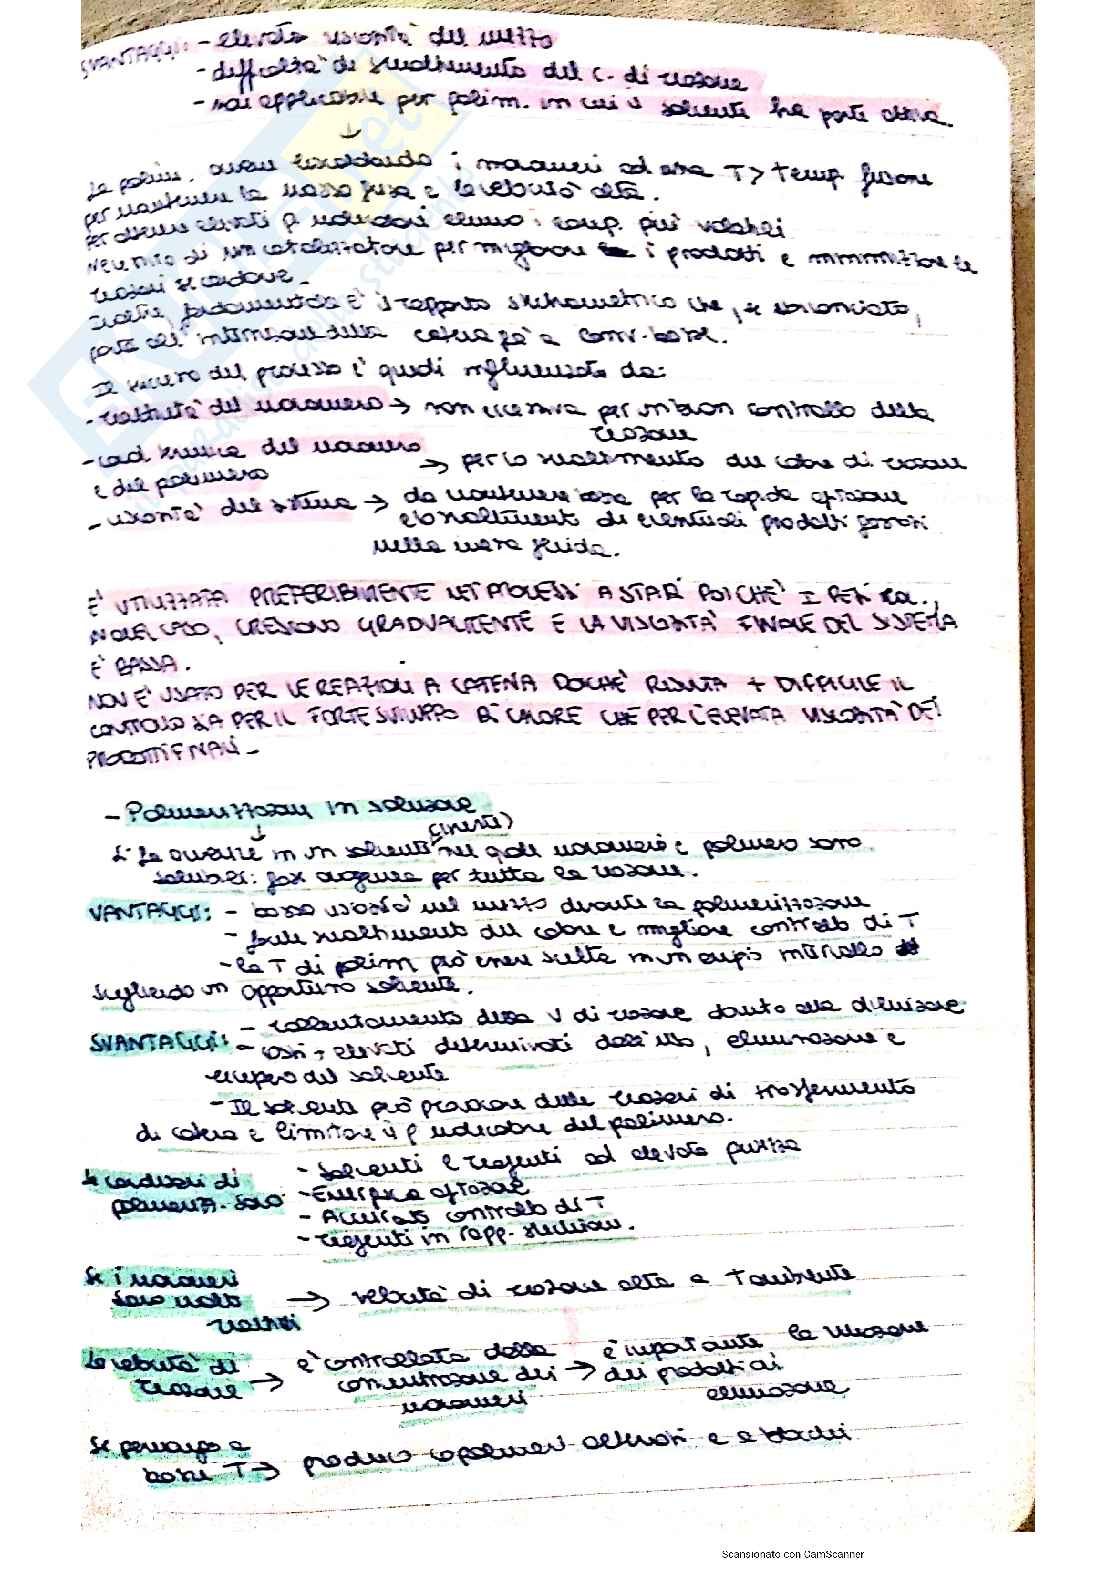 SVANTAGGI: - elevata viscosità del mezzo
- difficoltà di smaltimento del c. di reazione
- non applicabile per polim. in cui il solvente ha parte attiva.
↓
La polim. avviene riscaldando i monomeri ad una T > temp fusione
per mantenere la massa fusa e la velocità alta.
Per ottenere elevati p molecolari elimino i comp. più volatili
Necessito di un catalizzatore per migliorare i prodotti e minimizzare le
reazioni secondarie.
Inoltre, fondamentale è il rapporto stechiometrico che, se sbilanciato,
porta all'interruzione della catena già a conv. basse.
Il successo del processo è quindi influenzato da:
- reattività del monomero → non eccessiva per un buon controllo della
reazione
- cond. termica del monomero
e del polimero → per lo smaltimento del calore di reazione
- viscosità del sistema → da mantenere bassa per la rapida agitazione
e lo smaltimento di eventuali prodotti gassosi
nella massa fluida.
È UTILIZZATA PREFERIBILMENTE NEI PROCESSI A STADI POICHÉ I PESI MOL.,
IN QUEL CASO, CRESCONO GRADUALMENTE E LA VISCOSITÀ FINALE DEL SISTEMA
È BASSA.
NON È USATO PER LE REAZIONI A CATENA POICHÉ RISULTA + DIFFICILE IL
CONTROLLO SIA PER IL FORTE SVILUPPO DI CALORE CHE PER L'ELEVATA VISCOSITÀ DEI
PRODOTTI FINALI -
- Polimerizzazione in soluzione
↓ (inerte)
avviene in un solvente nel quale monomero e polimero sono
solubili: fase omogenea per tutta la reazione.
VANTAGGI: - bassa viscosità nel mezzo durante la polimerizzazione
- facile smaltimento del calore e migliore controllo di T
- la T di polim può essere scelta in un ampio intervallo
scegliendo un opportuno solvente.
SVANTAGGI: - rallentamento della V di reazione dovuto alla diluizione
- costi + elevati determinati dall'uso, eliminazione e
recupero del solvente
- Il solvente può provocare delle reazioni di trasferimento
di catena e limitare il p molecolare del polimero.
Le condizioni di
polimerizz. sono
- Solventi e reagenti ad elevata purezza
- Energica agitazione
- Accurato controllo di T
- reagenti in rapp. stechiom.
Se i monomeri
sono molto
reattivi → velocità di reazione alta a T ambiente
La velocità di
reazione → è controllata dalla
concentrazione dei
monomeri → è importante la rimozione
dei prodotti di
eliminazione
Se pervengo a
basse T → produco copolimeri alternati e a blocchi.
Scansionato con CamScanner